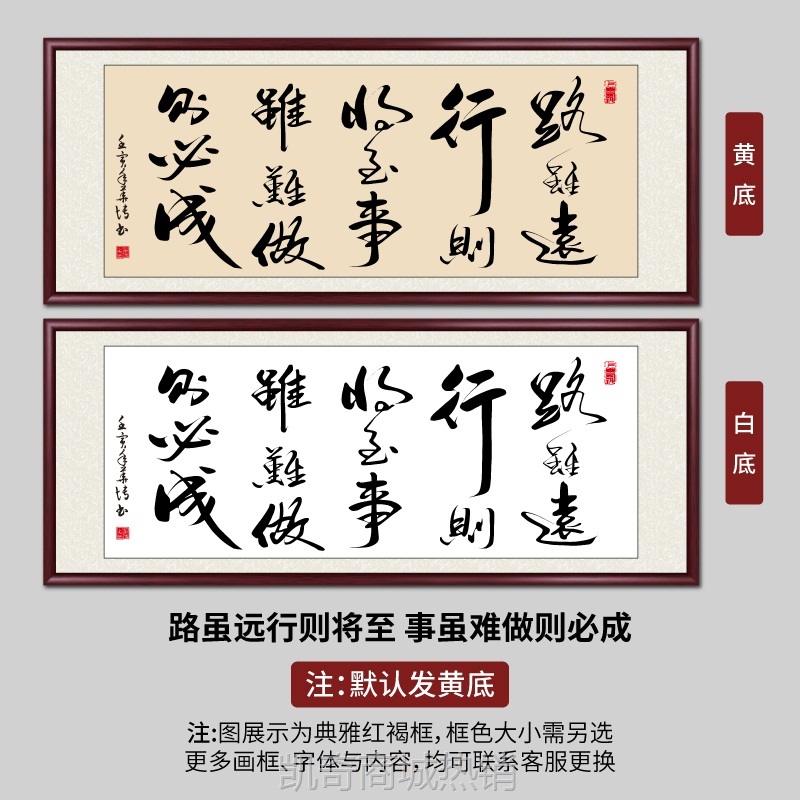 路雖遠
行則
将至事
雖難做
则必成
壬寅年
黄底
路雖遠
行則
将至事
雖難做
则必成
壬寅年
白底
路虽远行则将至 事虽难做则必成
注:默认发黄底
注:图展示为典雅红褐框,框色大小需另选
更多画框、字体与内容,均可联系客服更换
凯奇商城热销